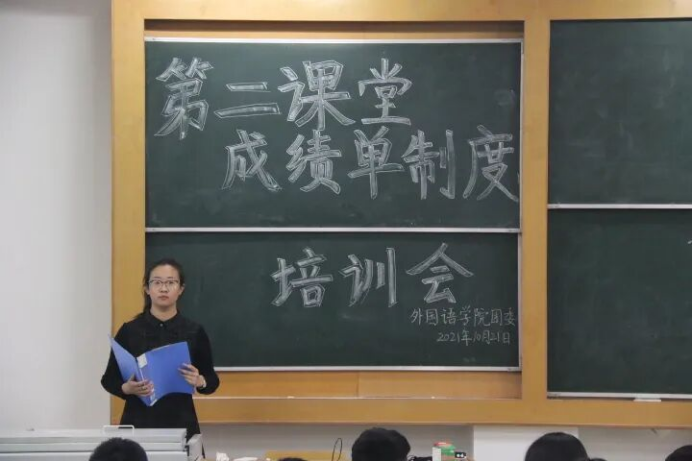 第二课堂
成绩单制度
培训会
外国语学院团委
2021年10月21日